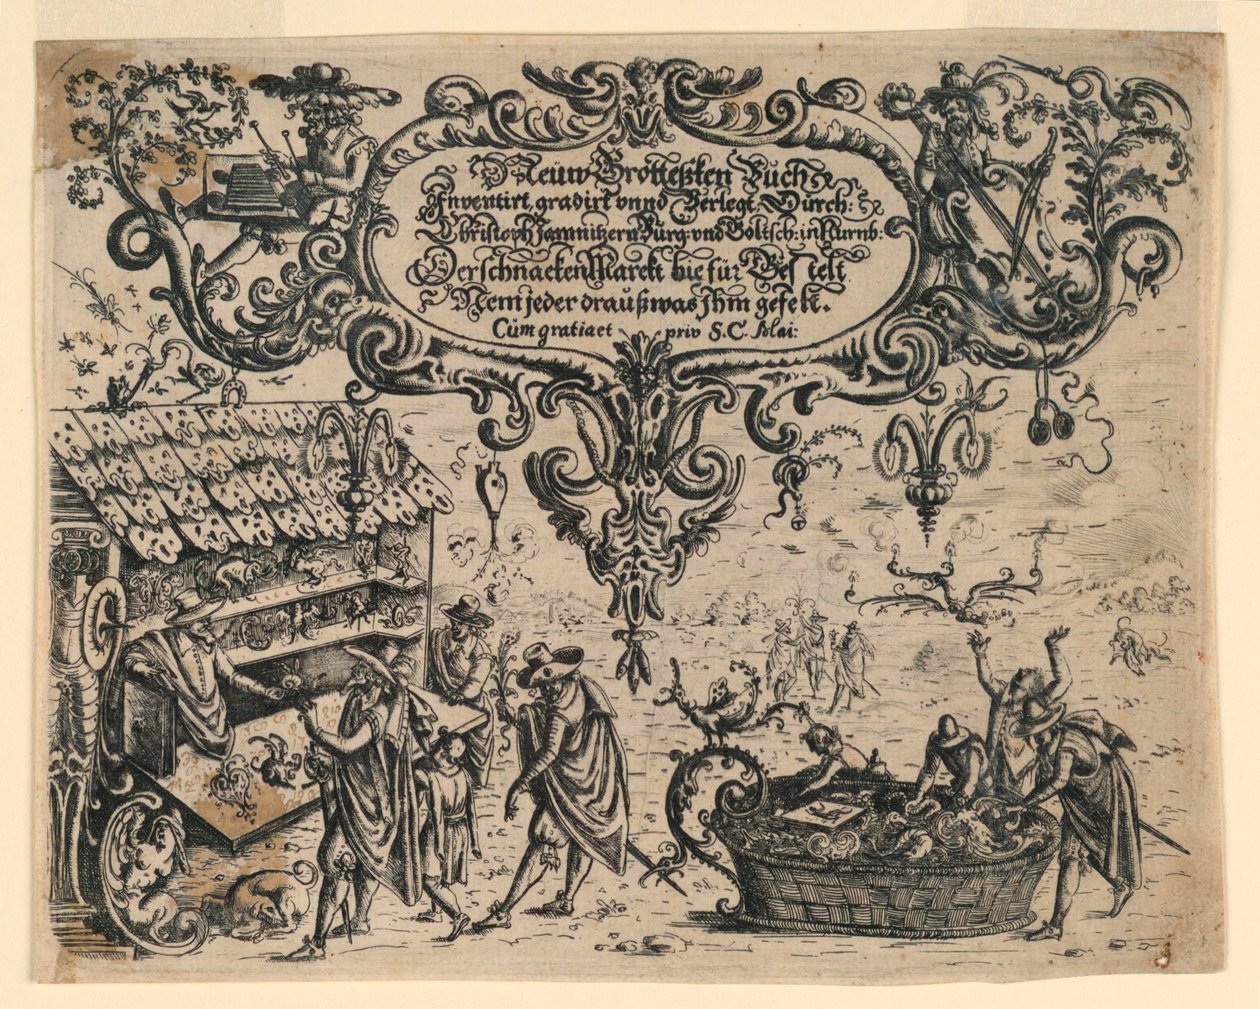 Neuw Grottessken Buch
Inventirt gradirt vnnd Verlegt Durch:
Christoph Jamnitzern Burg: vnd Goltsch: in Nurnb:
Der schnacken Marckt hie für Ges telt
Nem jeder draüß was Jhm gefelt.
Cüm gratia et priv S. C. Mai: